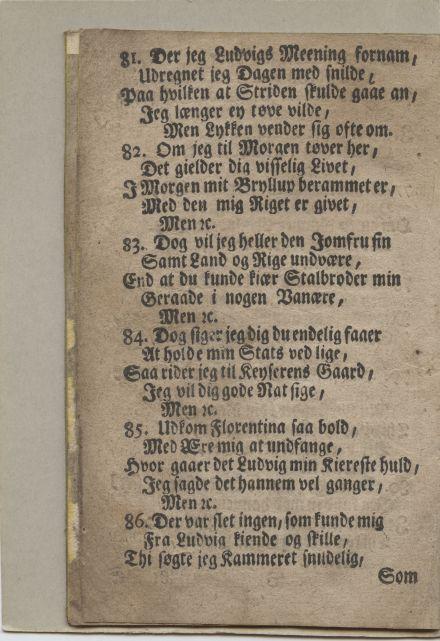 81. Der jeg Ludvigs Meening fornam,
Udregnet jeg Dagen med snilde,
Paa hvilken at Striden skulde gaae an,
Jeg længer ey tøve vilde,
Men Lykken vender sig ofte om.
82. Om jeg til Morgen tøver her,
Det gielder dig visselig Livet,
I Morgen mit Bryllup berammet er,
Med den mig Riget er givet,
Men ꝛc.
83. Dog vil jeg heller den Jomfru fin
Samt Land og Rige undvære,
End at du kunde kiær Stalbroder min
Geraade i nogen Vanære,
Men ꝛc.
84. Dog siger jeg dig du endelig faaer
At holde min Stats ved lige,
Saa rider jeg til Keyserens Gaard,
Jeg vil dig gode Nat sige,
Men ꝛc.
85. Udkom Florentina saa bold,
Med Ære mig at undfange,
Hvor gaaer det Ludvig min Kiereste huld,
Jeg sagde det hannem vel ganger,
Men ꝛc.
86. Der var slet ingen, som kunde mig
Fra Ludvig kiende og skille,
Thi søgte jeg Kammeret snildelig,
Som